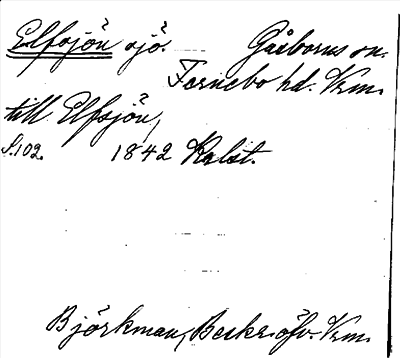 Elfsjön sjö. Gåsborns sn.
Fernebo hd. Vrm.
till Elfsjön,
S.102. 1842 Kalst.
Björkman, Beskr. öfv. Vrm.